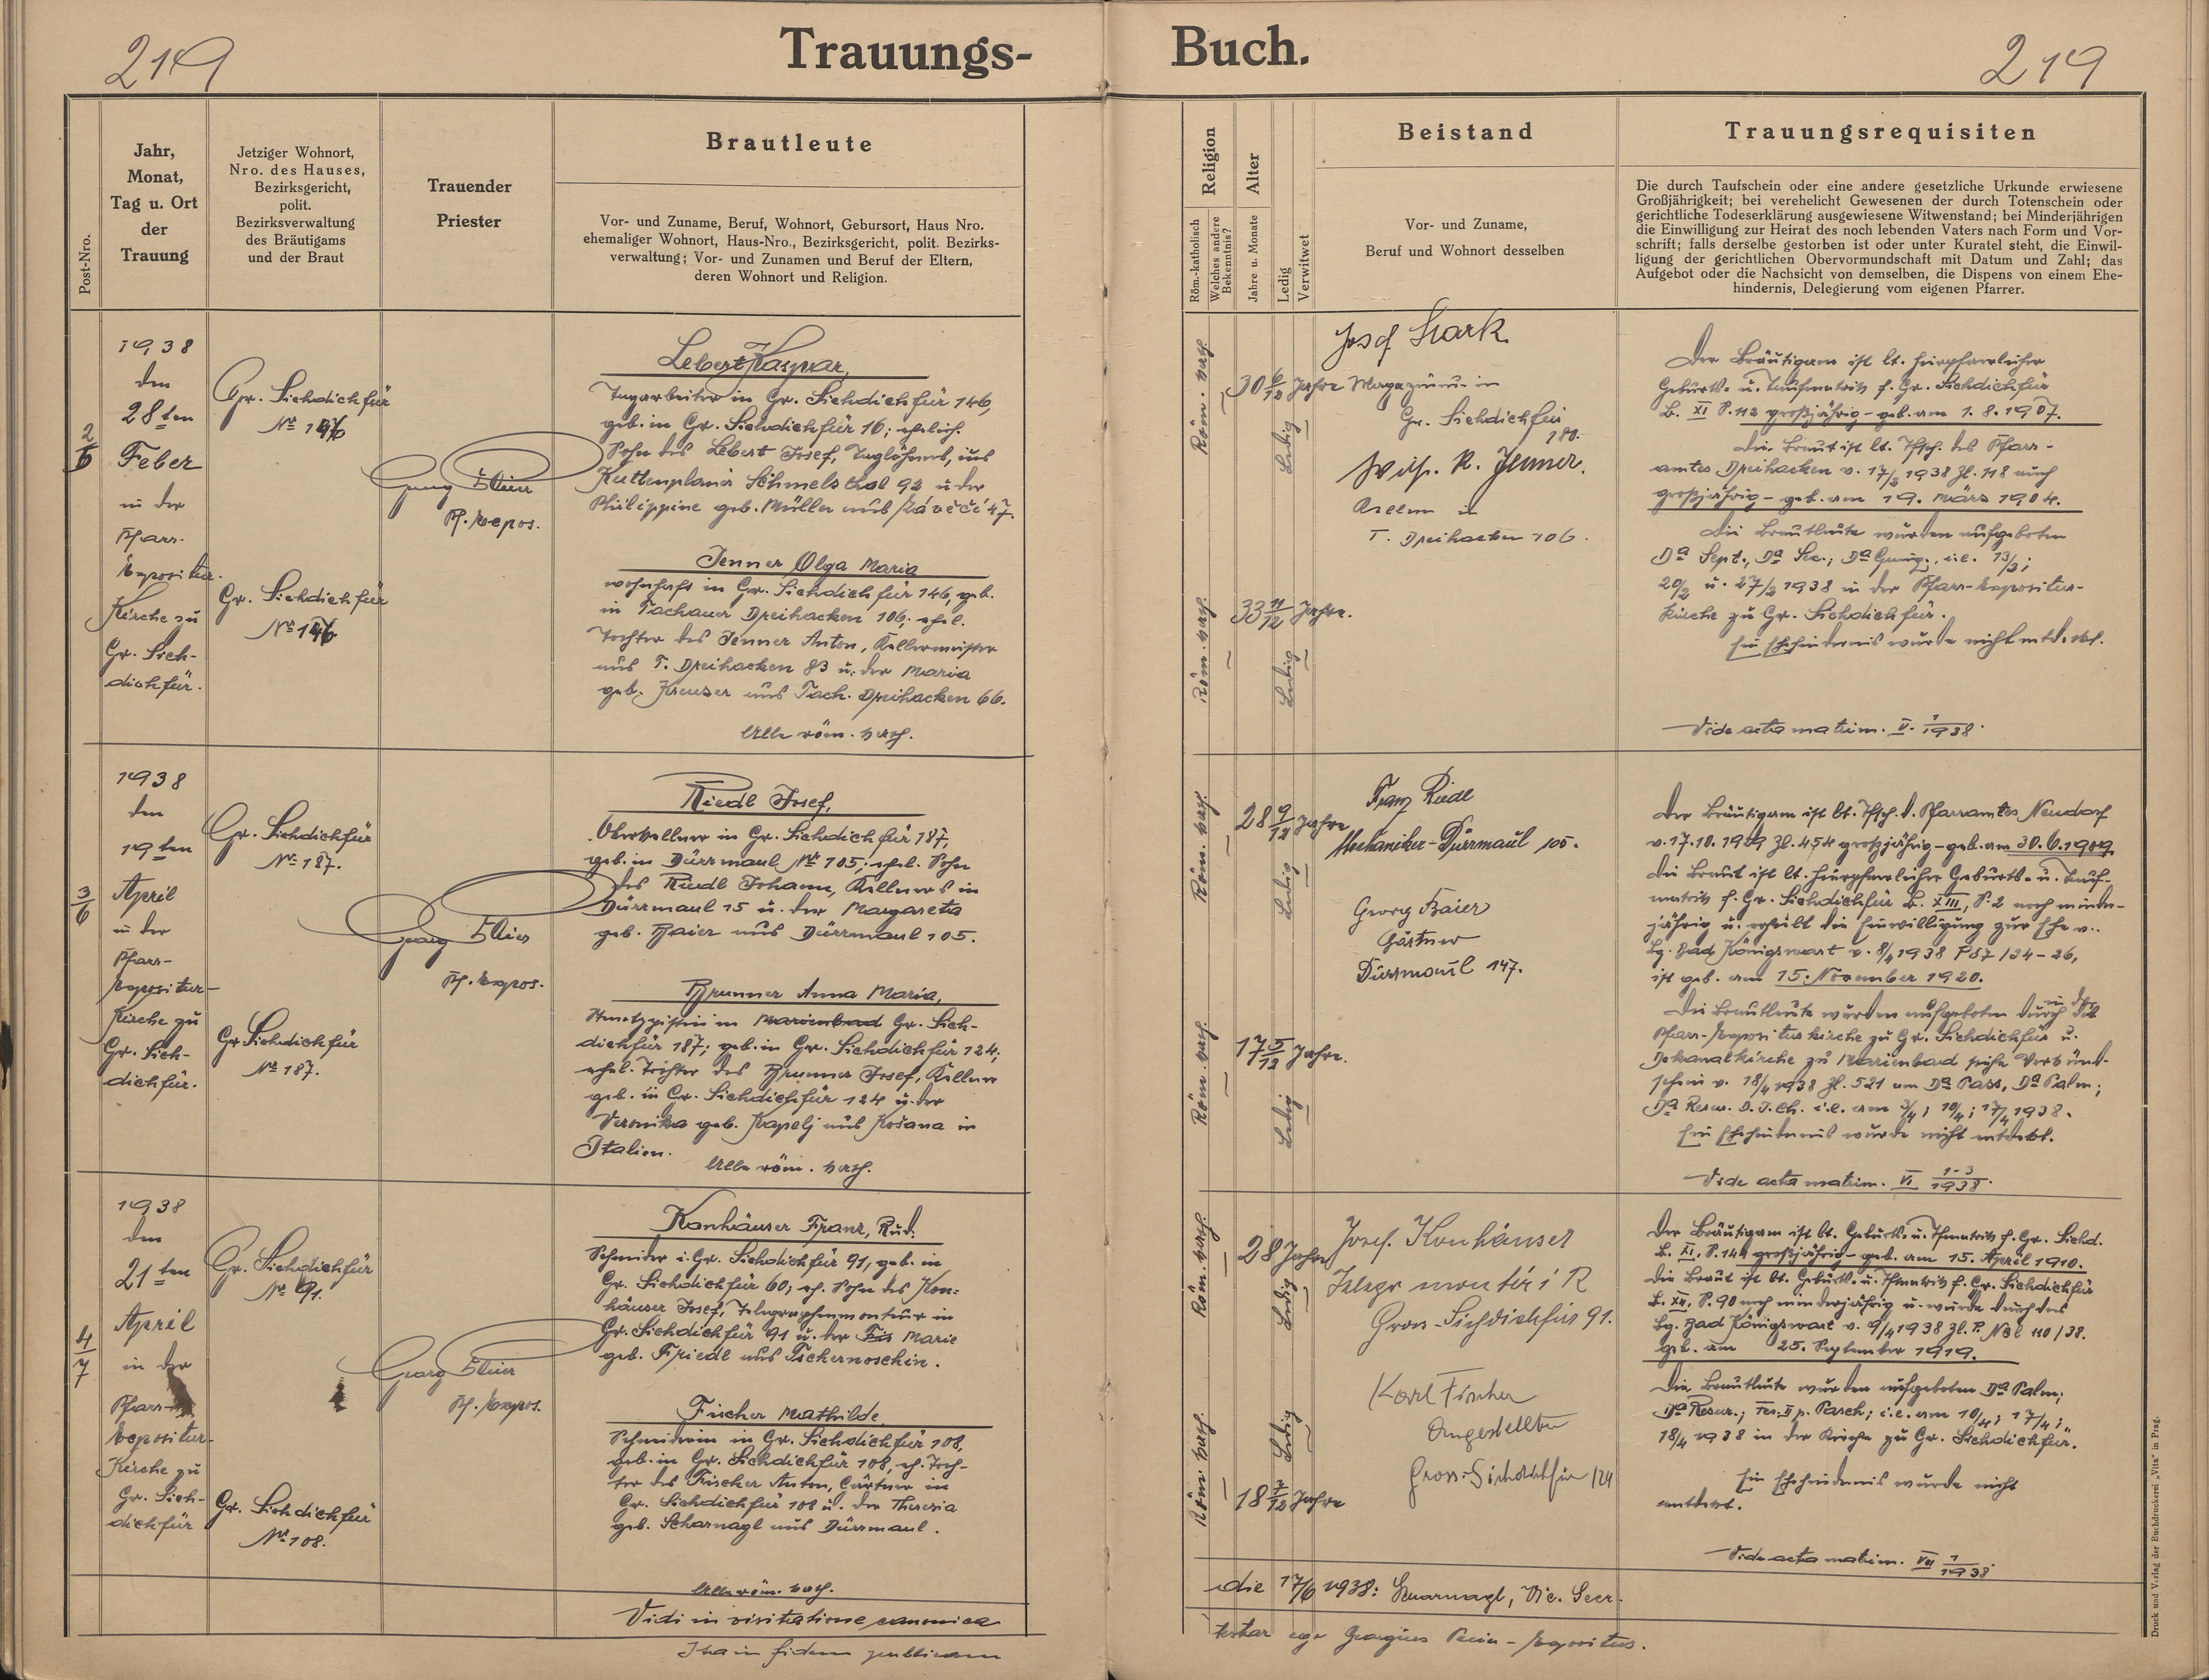 219
Trauungs-
Buch.
219
Post-Nro.
Jahr,
Monat,
Tag u. Ort
der
Trauung
Jetziger Wohnort,
Nro. des Hauses,
Bezirksgericht,
polit.
Bezirksverwaltung
des Bräutigams
und der Braut
Trauender
Priester
Brautleute
Vor- und Zuname, Beruf, Wohnort, Gebursort, Haus Nro.
ehemaliger Wohnort, Haus-Nro., Bezirksgericht, polit. Bezirks-
verwaltung; Vor- und Zunamen und Beruf der Eltern,
deren Wohnort und Religion.
Religion
Röm.-katholisch
Welches andere
Bekenntnis?
Alter
Jahre u. Monate
Ledig
Verwitwet
Beistand
Vor- und Zuname,
Beruf und Wohnort desselben
Trauungsrequisiten
Die durch Taufschein oder eine andere gesetzliche Urkunde erwiesene
Großjährigkeit; bei verehelicht Gewesenen der durch Totenschein oder
gerichtliche Todeserklärung ausgewiesene Witwenstand; bei Minderjährigen
die Einwilligung zur Heirat des noch lebenden Vaters nach Form und Vor-
schrift; falls derselbe gestorben ist oder unter Kuratel steht, die Einwil-
ligung der gerichtlichen Obervormundschaft mit Datum und Zahl; das
Aufgebot oder die Nachsicht von demselben, die Dispens von einem Ehe-
hindernis, Delegierung vom eigenen Pfarrer.
2/6
1938
den
28ten
Feber
in der
Pfarr-
Expositur-
Kirche zu
Gr. Sich-
dichfür.
Gr. Sichdichfür
Nr 146
Gr. Sichdichfür
Nr 146
Georg
Pf. Expos.
Lebert Kaspar,
Tagarbeiter in Gr. Sichdichfür 146,
geb. in Gr. Sichdichfür 16; ehelich.
Sohn des Lebert Josef, Taglöhners, aus
Kuttenplaner Schmelsthal 92 u. der
Philippine geb. Müller aus 47.
Jenner Olga Maria
wohnhaft in Gr. Sichdichfür 146, geb.
in Tachauer Dreihacken 106; ehel.
Tochter des Jenner Anton, Kellermeister
aus T. Dreihacken 83 u. der Maria
geb. Kreuzer aus Tach. Dreihacken 66.
Alle röm. kath.
Röm. kath.
30 6/12 Jahre
Ledig
Röm. kath.
33 11/12 Jahre.
Ledig
Josef Stark
in
Gr. Sichdichfür
180.
Wilh. R. Jenner.
in
T. Dreihacken 106.
Der Bräutigam ist lt. hierpfarrlicher
Geburts- u. Taufmatrik f. Gr. Sichdichfür
B. XI S. 112 großjährig - geb. am 1. 8. 1907.
Die Braut ist lt. Tfsch. des Pfarr-
amtes Dreihacken v. 17/2 1938 Zl. 118 auch
großjährig - geb. am 19. März 1904.
Die Brautleute wurden aufgeboten
Da Sept., Da Sex., Da Quinq., i.e. 13/2;
20/2 u. 27/2 1938 in der Pfarr-Expositur-
kirche zu Gr. Sichdichfür.
Ein Ehehindernis wurde nicht entdekt.
Vide acta matrim. V. 1/1938.
3/6
1938
den
19ten
April
in der
Pfarr-
Expositur-
Kirche zu
Gr. Sich-
dichfür.
Gr. Sichdichfür
Nr 187.
Gr. Sichdichfür
Nr 187.
Georg
Pf. Expos.
Riedl Josef,
Oberkellner in Gr. Sichdichfür 187,
geb. in Dürrmaul Nr 105; ehel. Sohn
des Riedl Johann, Kellners in
Dürrmaul 15 u. der Margareta
geb. Baier aus Dürrmaul 105.
Brunner Anna Maria,
in Marienbad Gr. Sich-
dichfür 187; geb. in Gr. Sichdichfür 124;
ehel. Tochter des Brunner Josef, Kellner
geb. in Gr. Sichdichfür 124 u. der
Veronika geb. Kapelj aus Košana in
Italien.
Alle röm. kath.
Röm. kath.
28 9/12 Jahre
Ledig
Röm. kath.
17 5/12 Jahre.
Ledig
Franz Riedl
Mechaniker - Dürrmaul 105.
Georg Baier
Gärtner
Dürrmaul 147.
Der Bräutigam ist lt. Tfsch. d. Pfarramtes Neudorf
v. 17.10. 1929 Zl. 454 großjährig - geb. am 30. 6. 1909.
Die Braut ist lt. hierpfarrlicher Geburts- u. Tauf-
matrik f. Gr. Sichdichfür B. XIII, S. 2 noch minder-
jährig u. erhielt die Einwilligung zur Ehe v.
Bg. Bad Königswart v. 8/4 1938 P 57/34 - 26,
ist geb. am 15. November 1920.
Die Brautleute wurden aufgeboten durch in der
Pfarr-Expositurkirche zu Gr. Sichdichfür u.
Dekanalkirche zu Marienbad siehe Verkünd-
schein v. 18/4 1938 Zl. 521 am Da Pass, Da Palm;
Da Resur. D. J. Ch. i.e. am 3/4; 10/4; 17/4 1938.
Ein Ehehindernis wurde nicht entdekt.
Vide acta matrim. VI 1-3/1938.
4/7
1938
den
21ten
April
in der
Pfarr-
Expositur-
Kirche zu
Gr. Sich-
dichfür
Gr. Sichdichfür
Nr 91.
Gr. Sichdichfür
Nr 108.
Georg
Pf. Expos.
Konhäuser Franz, Rud.
Schneider i. Gr. Sichdichfür 91, geb. in
Gr. Sichdichfür 60; eh. Sohn des Kon-
häuser Josef, Telegraphenmonteur in
Gr. Sichdichfür 91 u. der Marie
geb. Friedl aus Tschernoschin.
Fischer Mathilde
Schneiderin in Gr. Sichdichfür 108,
geb. in Gr. Sichdichfür 108, eh. Toch-
ter des Fischer Anton, Gärtner in
Gr. Sichdichfür 108 u. der Theresia
geb. Scharnagl aus Dürrmaul.
Alle röm. kath.
Röm. kath.
28 Jahre
Ledig
Röm. kath.
18 7/12 Jahre
Ledig
Josef Konhäuser
Gross-Sichdichfür 91.
Karl Fischer
Angestellter
Gross-Sichdichfür 124
Der Bräutigam ist lt. Geburts- u. Tfmatrik f. Gr. Sichd.
B. XI, S. 144 großjährig - geb. am 15. April 1910.
Die Braut ist lt. Geburts- u. Tfmatrik f. Gr. Sichdichfür
B. XII, S. 90 noch minderjährig u. wurde durch das
Bg. Bad Königswart v. 9/4 1938 Zl. P. 110/38.
geb. am 25. September 1919.
Die Brautleute wurden aufgeboten Da Palm;
Da Resur.; Fer. II p. Pasch; i.e. am 10/4; 17/4;
18/4 1938 in der Kirche zu Gr. Sichdichfür.
Ein Ehehindernis wurde nicht
entdekt.
Vide acta matrim. VII 1/1938.
Vidi in visitatione canonica
die 17/6 1938: Scharnagl, Vic. Secr.
Ita in fidem publicam
testor ego Georgius - Expositus.
Druck und Verlag der Buchdruckerei „Vita" in Prag.